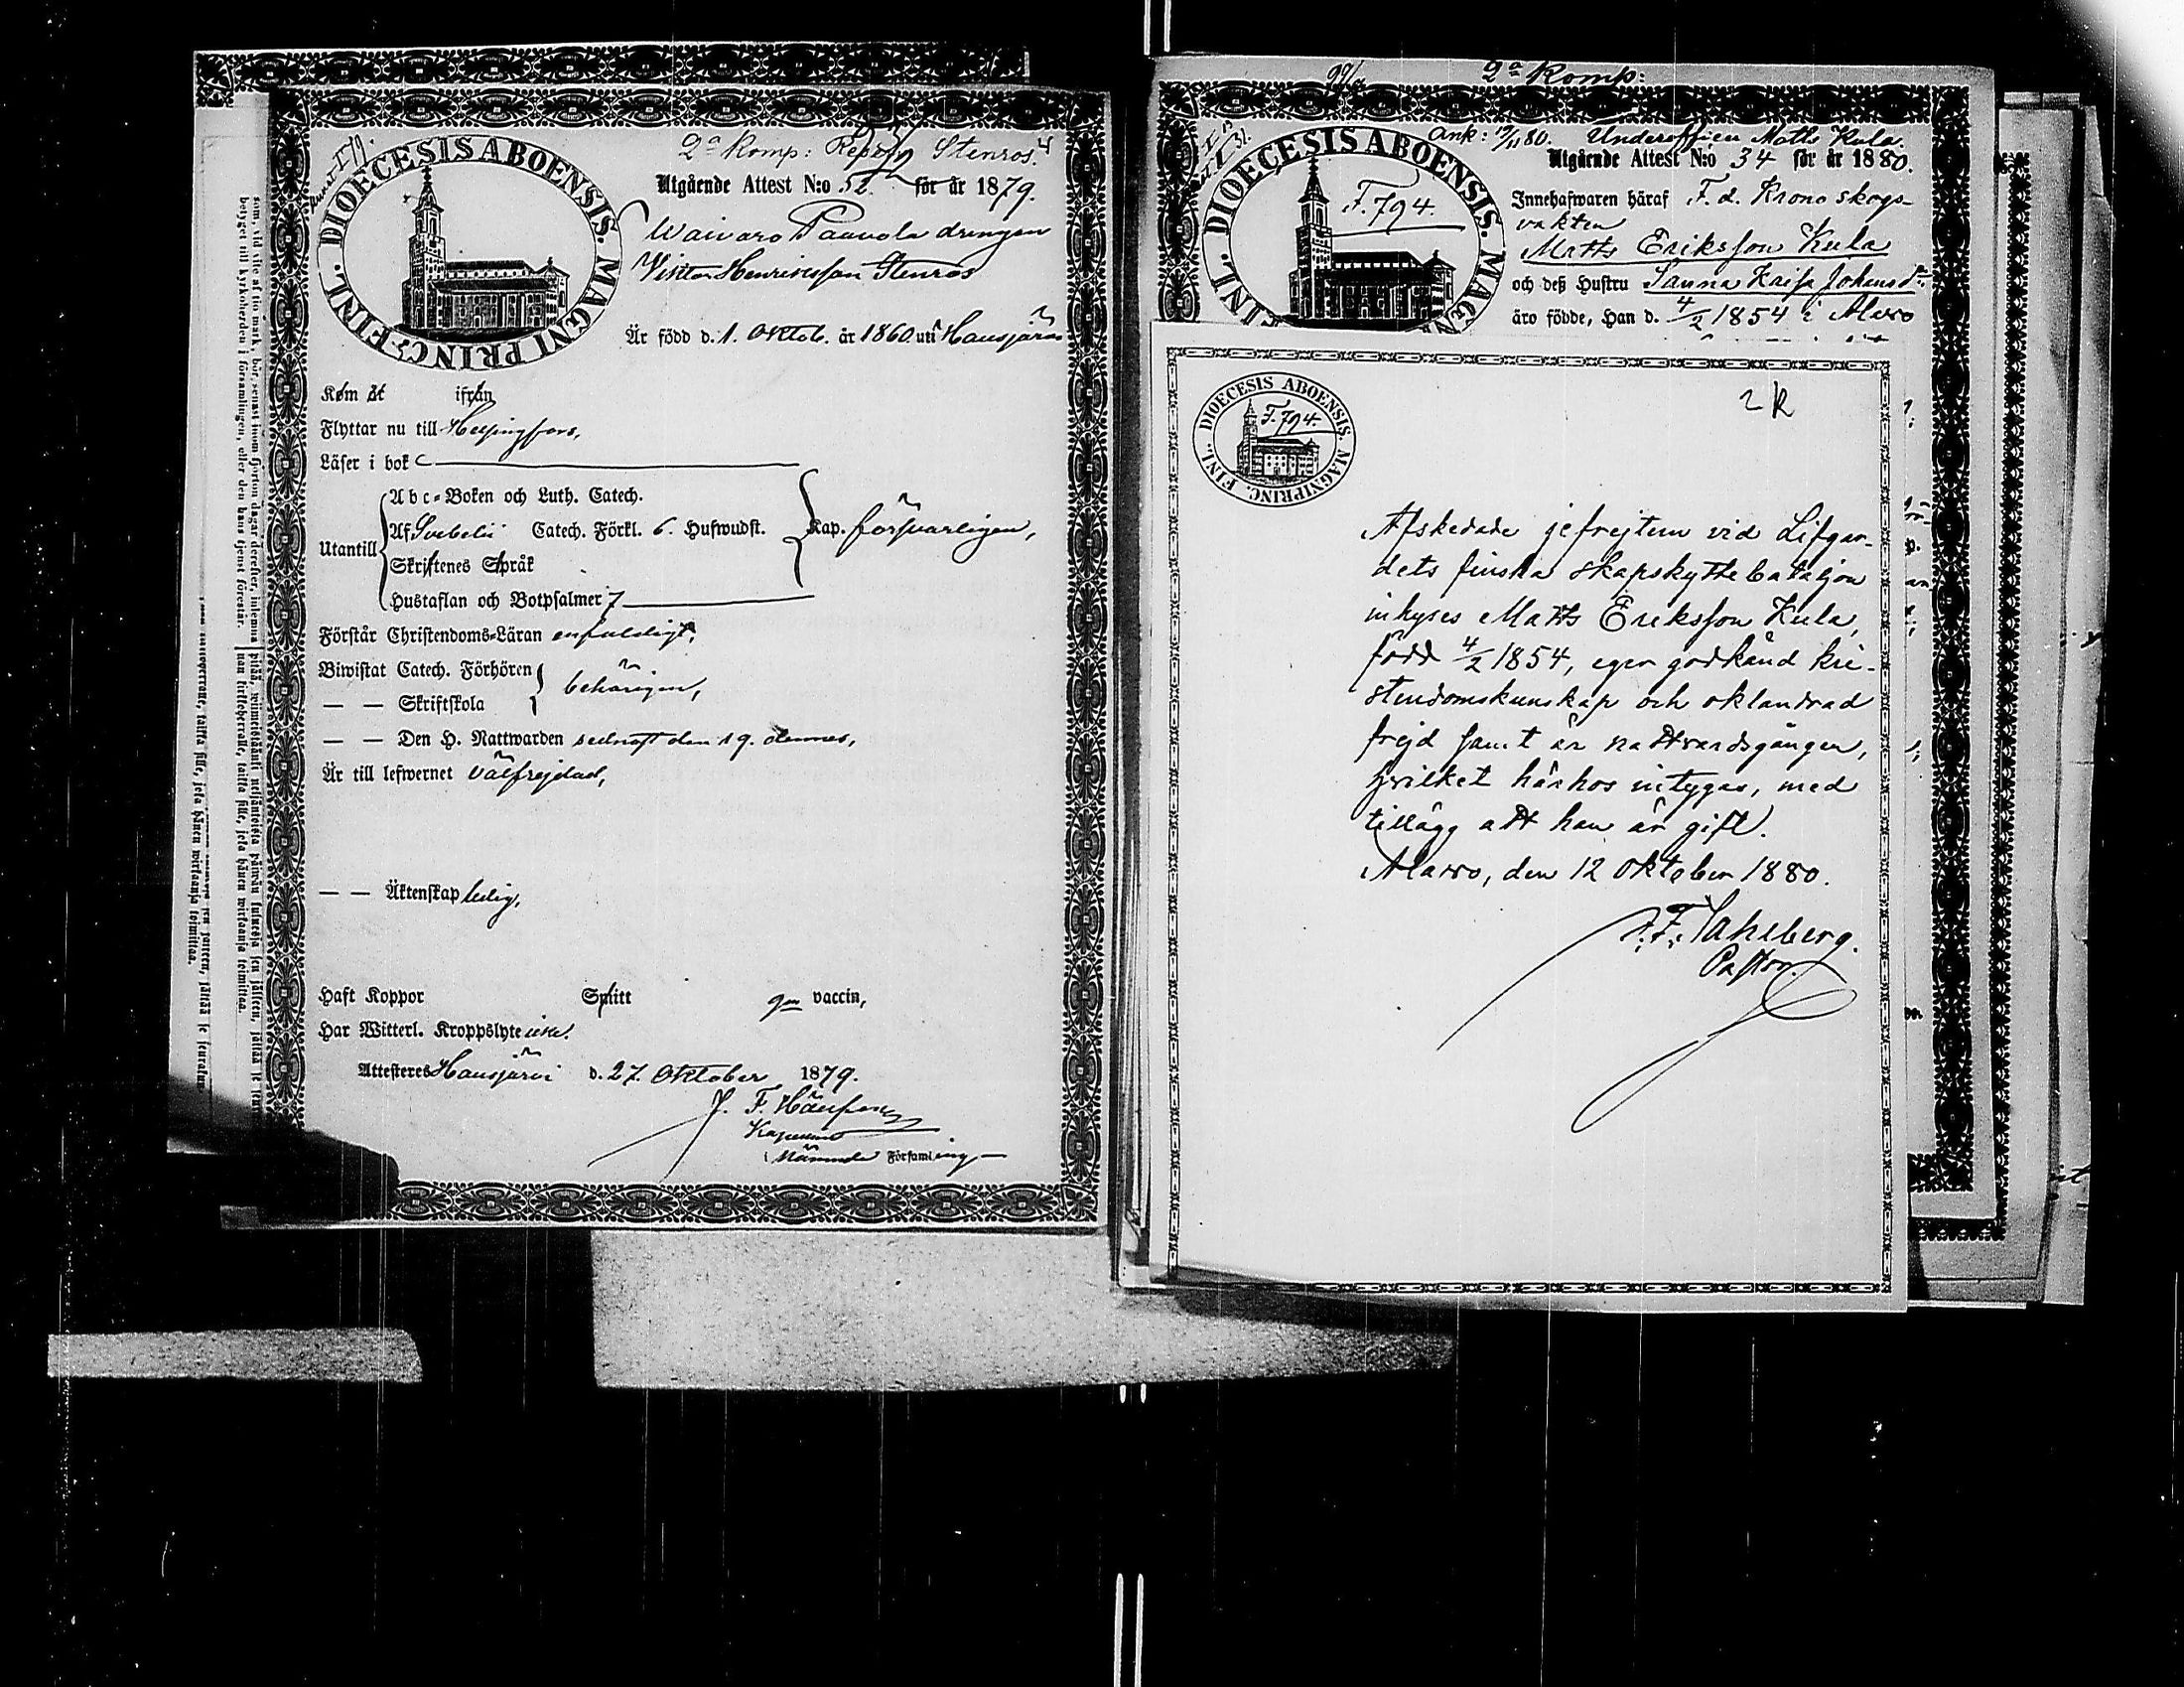 2a Komp: Stenros
DIOECESIS ABOENSIS. MAGNI PRINC. FINL.
Utgående Attest N:o 52 för år 1879.
Waivaro Paavola drengen
Viktor Henriksson Stenros
Är född d. 1. Oktob. år 1860 uti Hausjärvi
Kom åt ifrån
Flyttar nu till Helsingfors,
Läser i bok
Utantill
Abc-Boken och Luth. Catech.
Af Svebelii Catech. Förkl. 6. Hufwudst.
Skriftenes Språk
Hustaflan och Botpsalmer 7
Kap. försvarligen,
Förstår Christendoms-Läran enfaldigt,
Biwistat Catech. Förhören
— — Skriftskola
behörigen,
— — Den H. Nattwarden sednast den 19. dennes,
Är till lefwernet välfrejdad,
— — Äktenskap ledig,
Haft Koppor Smitt gm vaccin,
Har Witterl. Kroppslyte icke.
Attesteres Hausjärvi d. 27. Oktober 1879.
J. F.
Kapellan
i Nämnde Församling
2a Komp:
Ank: 19/11 80. Underofficer Matts Kula.
DIOECESIS ABOENSIS. MAGNI FINL.
F. 794.
Utgående Attest N:o 34 för år 1880.
Innehafwaren häraf F. d. Krono skogs-
vakten
Matts Eriksson Kula
och deß Hustru Sanna Kaisa Johansd:r
äro födde, Han d. 4/2 1854 i Alavo
DIOECESIS ABOENSIS. MAGNI PRINC. FINL.
F. 794.
2 K
Afskedade gefrejtern vid Lifgar-
dets finska skarpskyttebataljon
inhyses Matts Eriksson Kula,
född 4/2 1854, eger godkänd kri-
stendomskunskap och oklandrad
frejd samt är nattvardsgången,
hvilket härhos intygas, med
tillägg att han är gift.
Alavo, den 12 Oktober 1880.
F. Sahlberg.
Pastor.